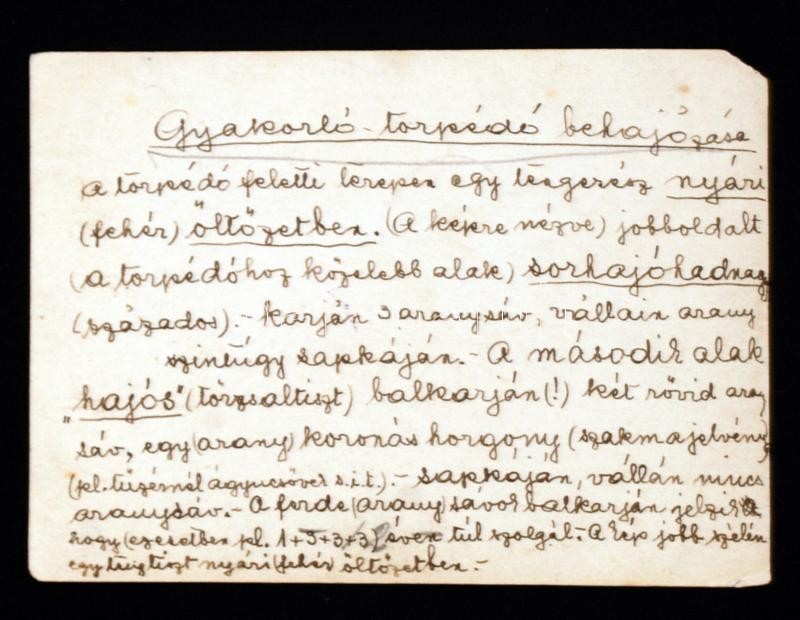 Gyakorló-torpédó behajózása
A torpédó feletti terepen egy tengerész nyári
(fehér) öltözetben. (A képre nézve) jobboldalt
(a torpédóhoz közelebb alak) sorhajóhadnagy
(százados).- Karján 3 aranysáv, vállain arany
szintúgy sapkáján.- A második alak
"hajós" (törzsaltiszt) balkarján(!) két rövid arany
sáv, egy (arany) koronás horgony (szakmajelvény)
(pl. tüzérnél ágyucsövek s.i.t.).- sapkáján, vállán nincs
aranysáv.- A ferde (arany) sávok balkarján jelzik
hogy (ezesetben pl. 1+3+3+3) éven túl szolgál.- A kép jobb szélén
egy tiszt nyári (fehér öltözetben.-